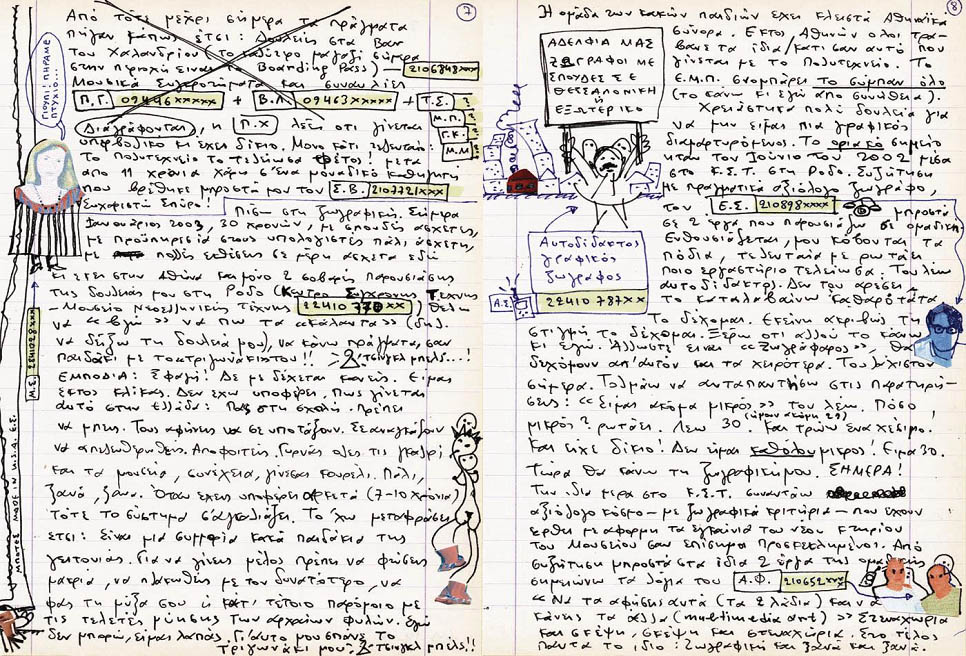 7
Από τότε μέχρι σήμερα τα πράγματα
πήγαν κάπως έτσι: Δουλειές στα Bar
του Χαλανδρίου (το καλύτερο μαγαζί σήμερα
στην περιοχή είναι το Boarding Pass) — 2106848xxx
Μουσικά Συγκροτήματα και συναυλίες
Π.Γ. 09446xxxxx + Β.Λ. 09463xxxxx + Τ.Σ. ?
Μ.Π. ?
Γ.Κ. ?
Μ.Μ
ΠΟΥΛΙ! ΠΗΡΑΜΕ ΠΤΥΧΙΟ...
Διαγράφονται, η Π.Χ λέει ότι γίνεται
υπερβολικό κι έχει δίκιο. Μόνο κάτι τελευταίο:
Το πολυτεχνείο το τελείωσα φέτος! μετά
από 11 χρόνια χάρη σ'ένα μοναδικό καθηγητή
που βρέθηκε μπροστά μου τον Σ.Β. 2107721xxx
Ευχαριστώ Σπύρο!
Πίσω στη ζωγραφική. Σήμερα
Ιανουάριος 2003, 30 χρονών, με σπουδές άσχετες,
με προϋπηρεσία στους υπολογιστές πάλι άσχετη,
με πολλές εκθέσεις σε μέρη άσχετα εδώ
κι εκεί στην Αθήνα και μόνο 2 σοβαρές παρουσιάσεις
της δουλειάς μου στη Ρόδο (Κέντρο Σύγχρονης Τέχνης
Μουσείο Νεοελληνικής Τέχνης 22410 770xx) θέλω
να «βγω» να πω τα «κάλαντα» (δηλ.
να δείξω τη δουλειά μου), να κάνω πράγματα, σαν
παιδάκι με το τριγωνάκι στο!! τσίγκλ μπελς...!
Μ.Σ. 2241028xxx
ΕΜΠΟΔΙΑ: Σφαγή! Δε με δέχεται κανείς. Είμαι
εκτός κλίκας. Δεν έχω υποφέρει. Πως γίνεται
αυτό στην Ελλάδα: Πας στη σχολή. Πρέπει
να μπεις. Τους αφήνεις να σε υποτάξουν. Σε αναγκάζουν
να απελευθερωθείς. Αποφοιτείς. Γυρνάς όλες τις γκαλερί
και τα μουσεία, συνέχεια, γίνεσαι κουρέλι. Πάλι,
ξανά, ξανά. Όταν έχεις υποφέρει αρκετά (7-10 χρόνια)
τότε το σύστημα σ'αγκαλιάζει. Το 'χω μεταφράσει
έτσι: είναι μια συμμορία κακά παιδάκια της
γειτονιάς. Για να γίνεις μέλος πρέπει να φτύσεις
μακριά, να πλακωθείς με τον δυνατότερο, να
φας τη μύξα σου ή κάτι τέτοιο παρόμοιο με
τις τελετές μύησης των αρχαίων φυλών. Εγώ
δεν μπορώ, είμαι λαπάς. Γι'αυτό μου σπάνε το
τριγωνάκι μου. τσίγκλ μπελς!!
8
Η ομάδα των κακών παιδιών έχει κλειστά Αθηναϊκά
σύνορα. Εκτός Αθηνών όλοι τρα-
βάνε τα ίδια/κάτι σαν αυτό που
γίνεται με το Πολυτεχνείο. Το
Ε.Μ.Π. σνομπάρει το σύμπαν όλο
(το κάνω κι εγώ από συνήθεια).
ΑΔΕΛΦΙΑ ΜΑΣ
ΖΩΓΡΑΦΟΙ ΜΕ
ΣΠΟΥΔΕΣ ΣΕ
ΘΕΣΣΑΛΟΝΙΚΗ
Ή
ΕΞΩΤΕΡΙΚΟ
Χρειάστηκε πολύ δουλειά για
να μην είμαι πια γραφικός
διαμαρτυρόμενος. Το οριακό σημείο
ήταν τον Ιούνιο του 2002 μέσα
στο Κ.Σ.Τ. στη Ρόδο. Συζητώντας
με πραγματικά αξιόλογο ζωγράφο,
τον Ε.Σ. 210898xxxx μπροστά
σε 2 έργα που παρουσίαζα σε ομαδική
Ενθουσιάζεται, μου κόβονται τα
πόδια, τελευταία με ρωτάει
ποιο εργαστήριο τελείωσα. Του λέω
αυτοδίδακτος. Δεν του αρέσει
το καταλαβαίνω καθαρότατα
Αυτοδίδακτος
γραφικός
ζωγράφος
Α.Σ. 22410 787xx
Το δέχομαι. Εκείνη ακριβώς τη
στιγμή το δέχομαι. Ξέρω ότι αλλού το κάνω
κι εγώ. Άλλωστε είναι «ζωγράφαρος», θα
δεχόμουν απ'αυτόν και τα χειρότερα. Του
σήμερα. Τολμάω να ανταπαντήσω στις παρατηρή-
σεις: «είμαι ακόμα μικρός» του λέω. Πόσο
μικρός? ρωτάει. Λέω 30. (ήμουν ακόμη 29) Και τρώω ένα χέσιμο.
Και είχε δίκιο! Δεν είμαι καθόλου μικρός! Είμαι 30.
Τώρα θα κάνω τη ζωγραφική μου. ΣΗΜΕΡΑ!
Την ίδια μέρα στο Κ.Σ.Τ. συναντάω
αξιόλογο κόσμο — με ζωγραφικά κριτήρια — που έχουν
έρθει με αφορμή τα εγκαίνια του νέου κτηρίου
του Μουσείου σαν επίσημα Προσκεκλημένοι. Από
συζήτηση μπροστά στα ίδια 2 έργα της ομαδικής
σημειώνω τα λόγια του Α.Φ. 210652xxxx
«Να τα αφήσεις αυτά (τα 2 λάδια) και να
κάνεις τα άλλα (multimedia art)» Στεναχώρια
και σκέψη, σκέψη και στεναχώρια. Στο τέλος
πάντα το ίδιο: ζωγραφική και ξανά και ξανά.